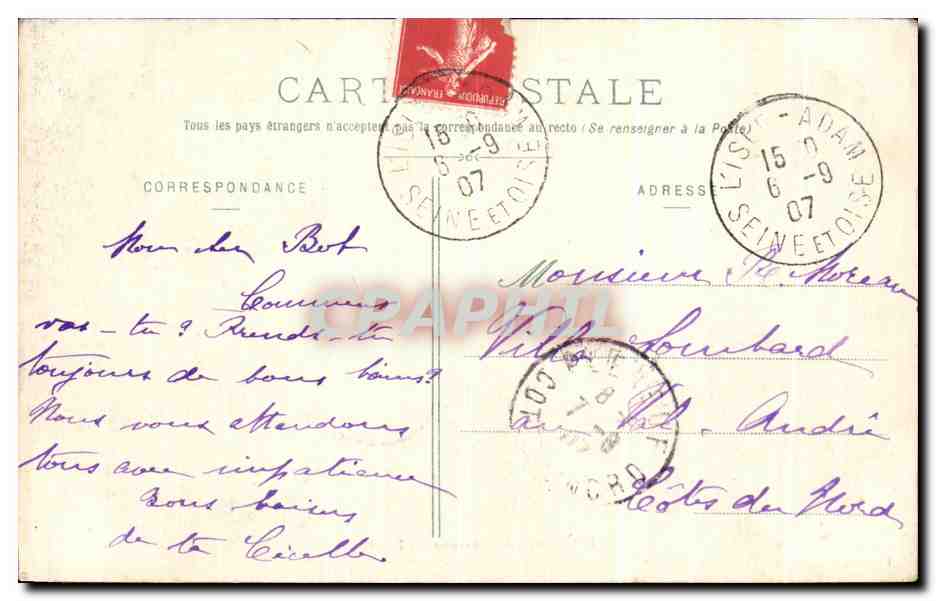 CARTE POSTALE
Tous les pays étrangers n'acceptent pas la correspondance au recto (Se renseigner à la Poste)
REPUBLIQUE FRANÇAISE
L'ISLE-ADAM
15
6 -9
07
SEINE ET OISE
L'ISLE-ADAM
15
6 -9
07
SEINE ET OISE
CORRESPONDANCE
Mon cher Bob
Comment
vas-tu? Prends-tu
toujours de bons bains?
Nous vous attendons
tous avec impatience
Bons baisers
de ta
ADRESSE
Monsieur R. Moreau
Villa Lombard
au Val-André
Côtes du Nord
CPAPHIL